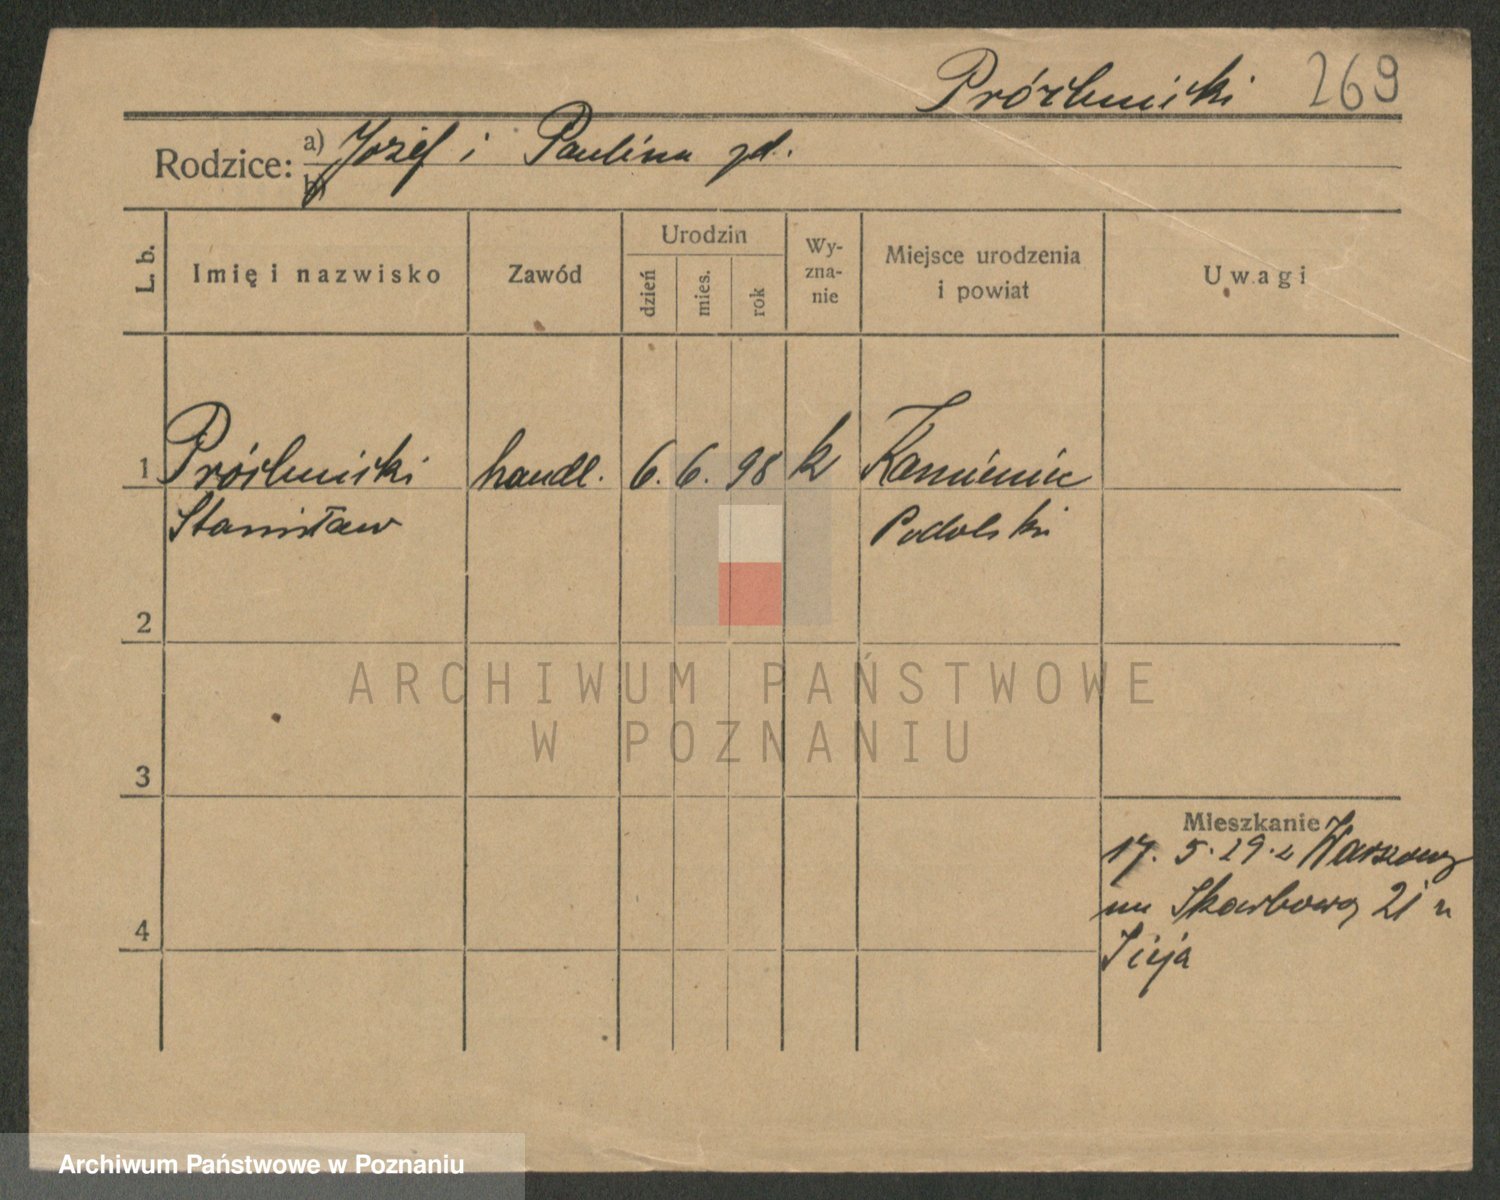 269
Rodzice: a) Józef i Paulina zd.
b)
L. b.
Imię i nazwisko
Zawód
Urodzin
dzień
mies.
rok
Wy-
zna-
nie
Miejsce urodzenia
i powiat
Uwagi
1 handl. 6. 6. 98 k Kamieniec
Stanisław Podolski
2
ARCHIWUM PAŃSTWOWE
W POZNANIU
3
Mieszkanie
17. 5. 29. z Warszawy
na Skarbową 21 u
4
Archiwum Państwowe w Poznaniu